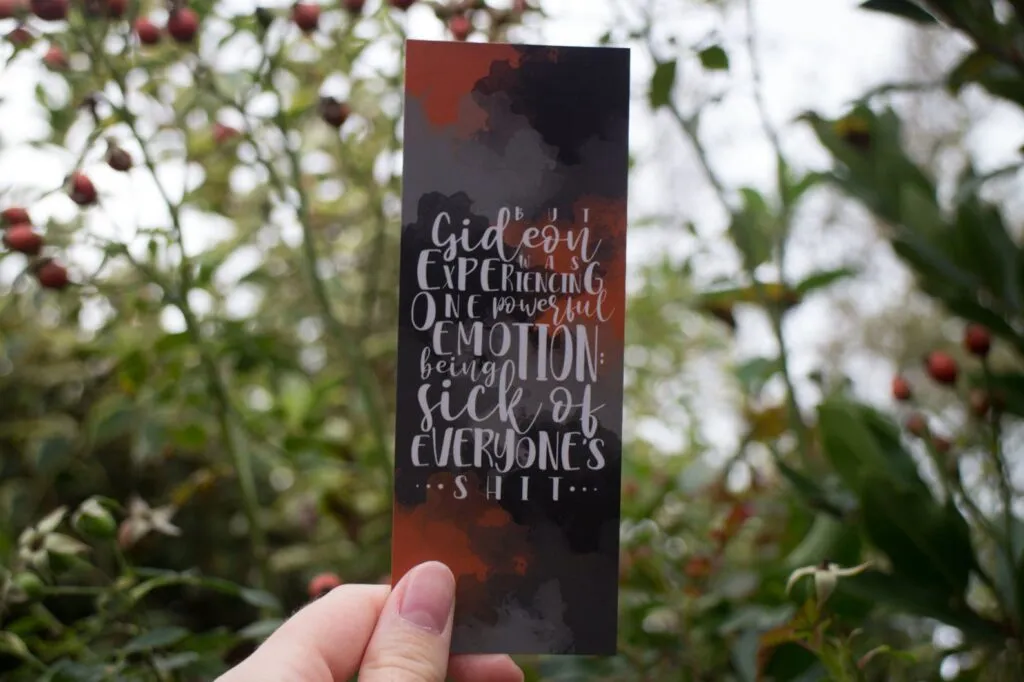 BUT
Gideon
WAS
EXPERIENCING
ONE powerful
EMOTION:
being
sick of
EVERYONE'S
...SHIT...